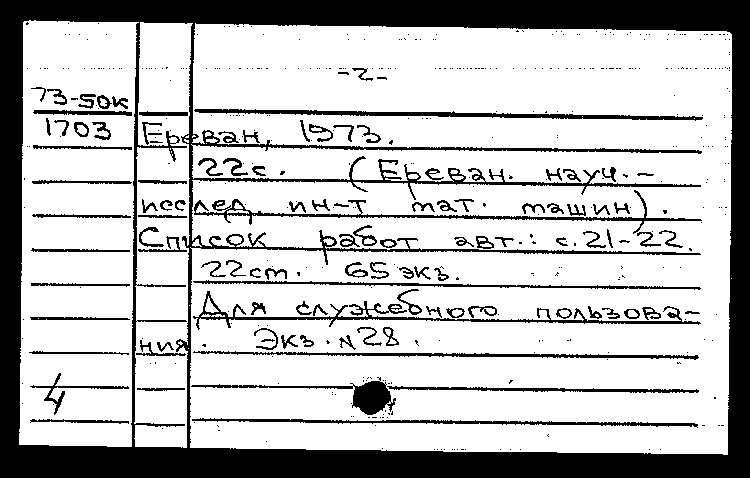 -2-
73-50к
1703 Ереван, 1973.
22с. (Ереван. науч.-
исслед. ин-т мат. машин).
Список работ авт.: с.21-22.
22см. 65экз.
Для служебного пользова-
ния. Экз. N28.
4